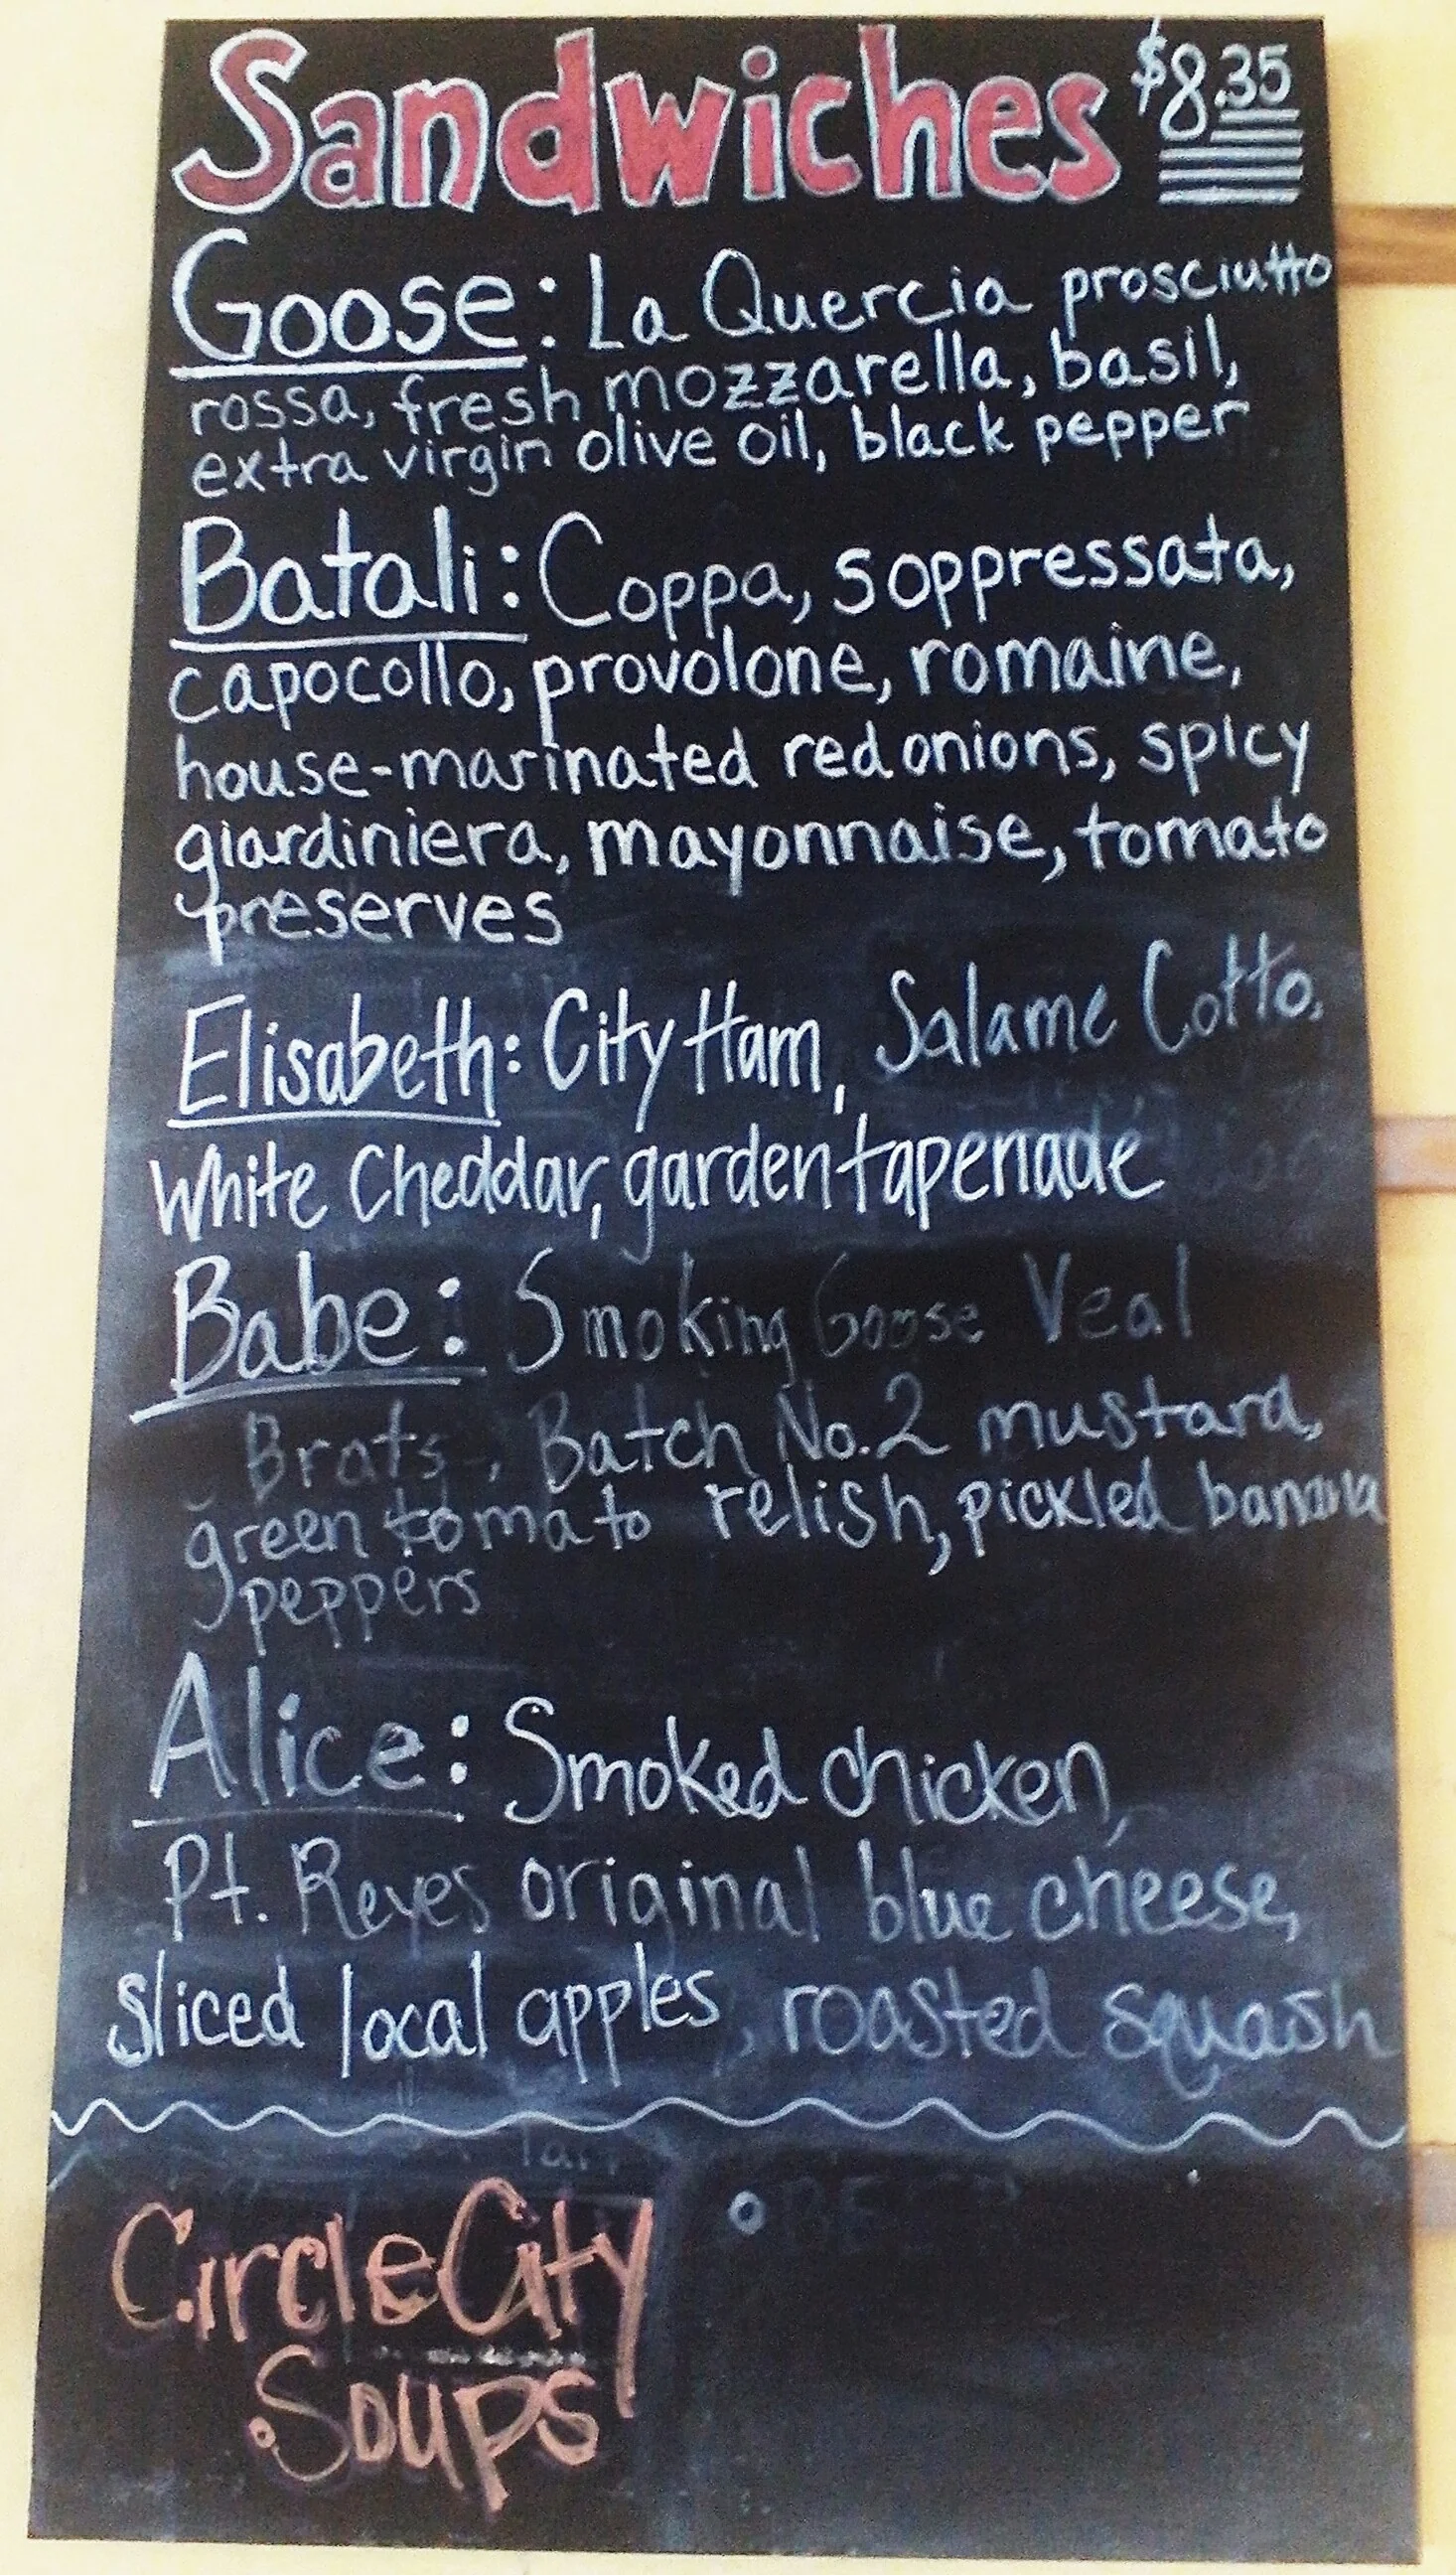 Sandwiches $8.35
Goose: La Quercia prosciutto
rossa, fresh mozzarella, basil,
extra virgin olive oil, black pepper
Batali: Coppa, soppressata,
capocollo, provolone, romaine,
house-marinated red onions, spicy
giardiniera, mayonnaise, tomato
preserves
Elisabeth: City Ham, Salame Cotto,
White Cheddar, garden tapenade
Babe: Smoking Goose Veal
Brats, Batch No.2 mustard,
green tomato relish, pickled banana
peppers
Alice: Smoked chicken,
Pt. Reyes original blue cheese,
sliced local apples, roasted squash
Circle City
Soups